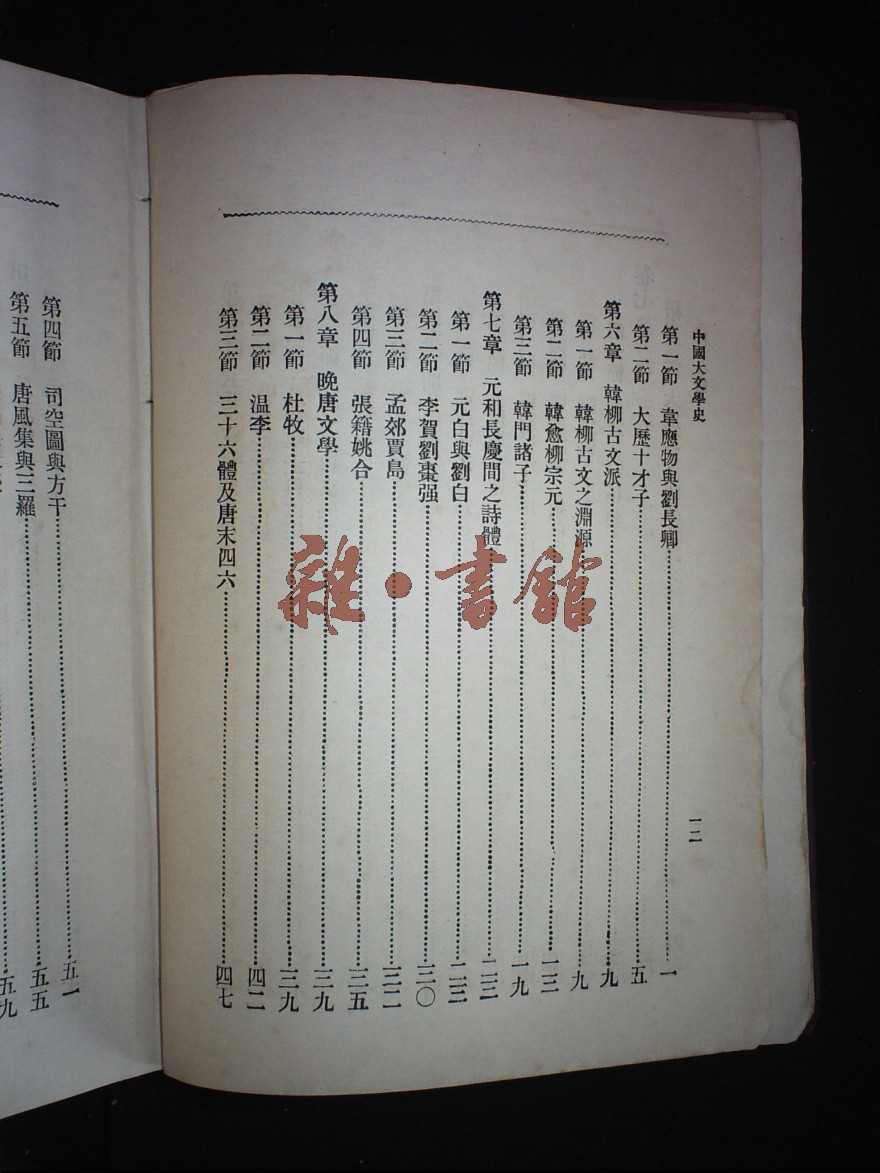 中國大文學史
一二
第一節 韋應物與劉長卿 一
第二節 大歷十才子 五
第六章 韓柳古文派 九
第一節 韓柳古文之淵源 九
第二節 韓愈柳宗元 一三
第三節 韓門諸子 一九
第七章 元和長慶間之詩體 二三
第一節 元白與劉白 二三
第二節 李賀劉棗强 三〇
第三節 孟郊賈島 三二
第四節 張籍姚合 三五
第八章 晚唐文學 三九
第一節 杜牧 三九
第二節 温李 四二
第三節 三十六體及唐末四六 四七
第四節 司空圖與方干 五一
第五節 唐風集與三羅 五五
五九
雜·書館